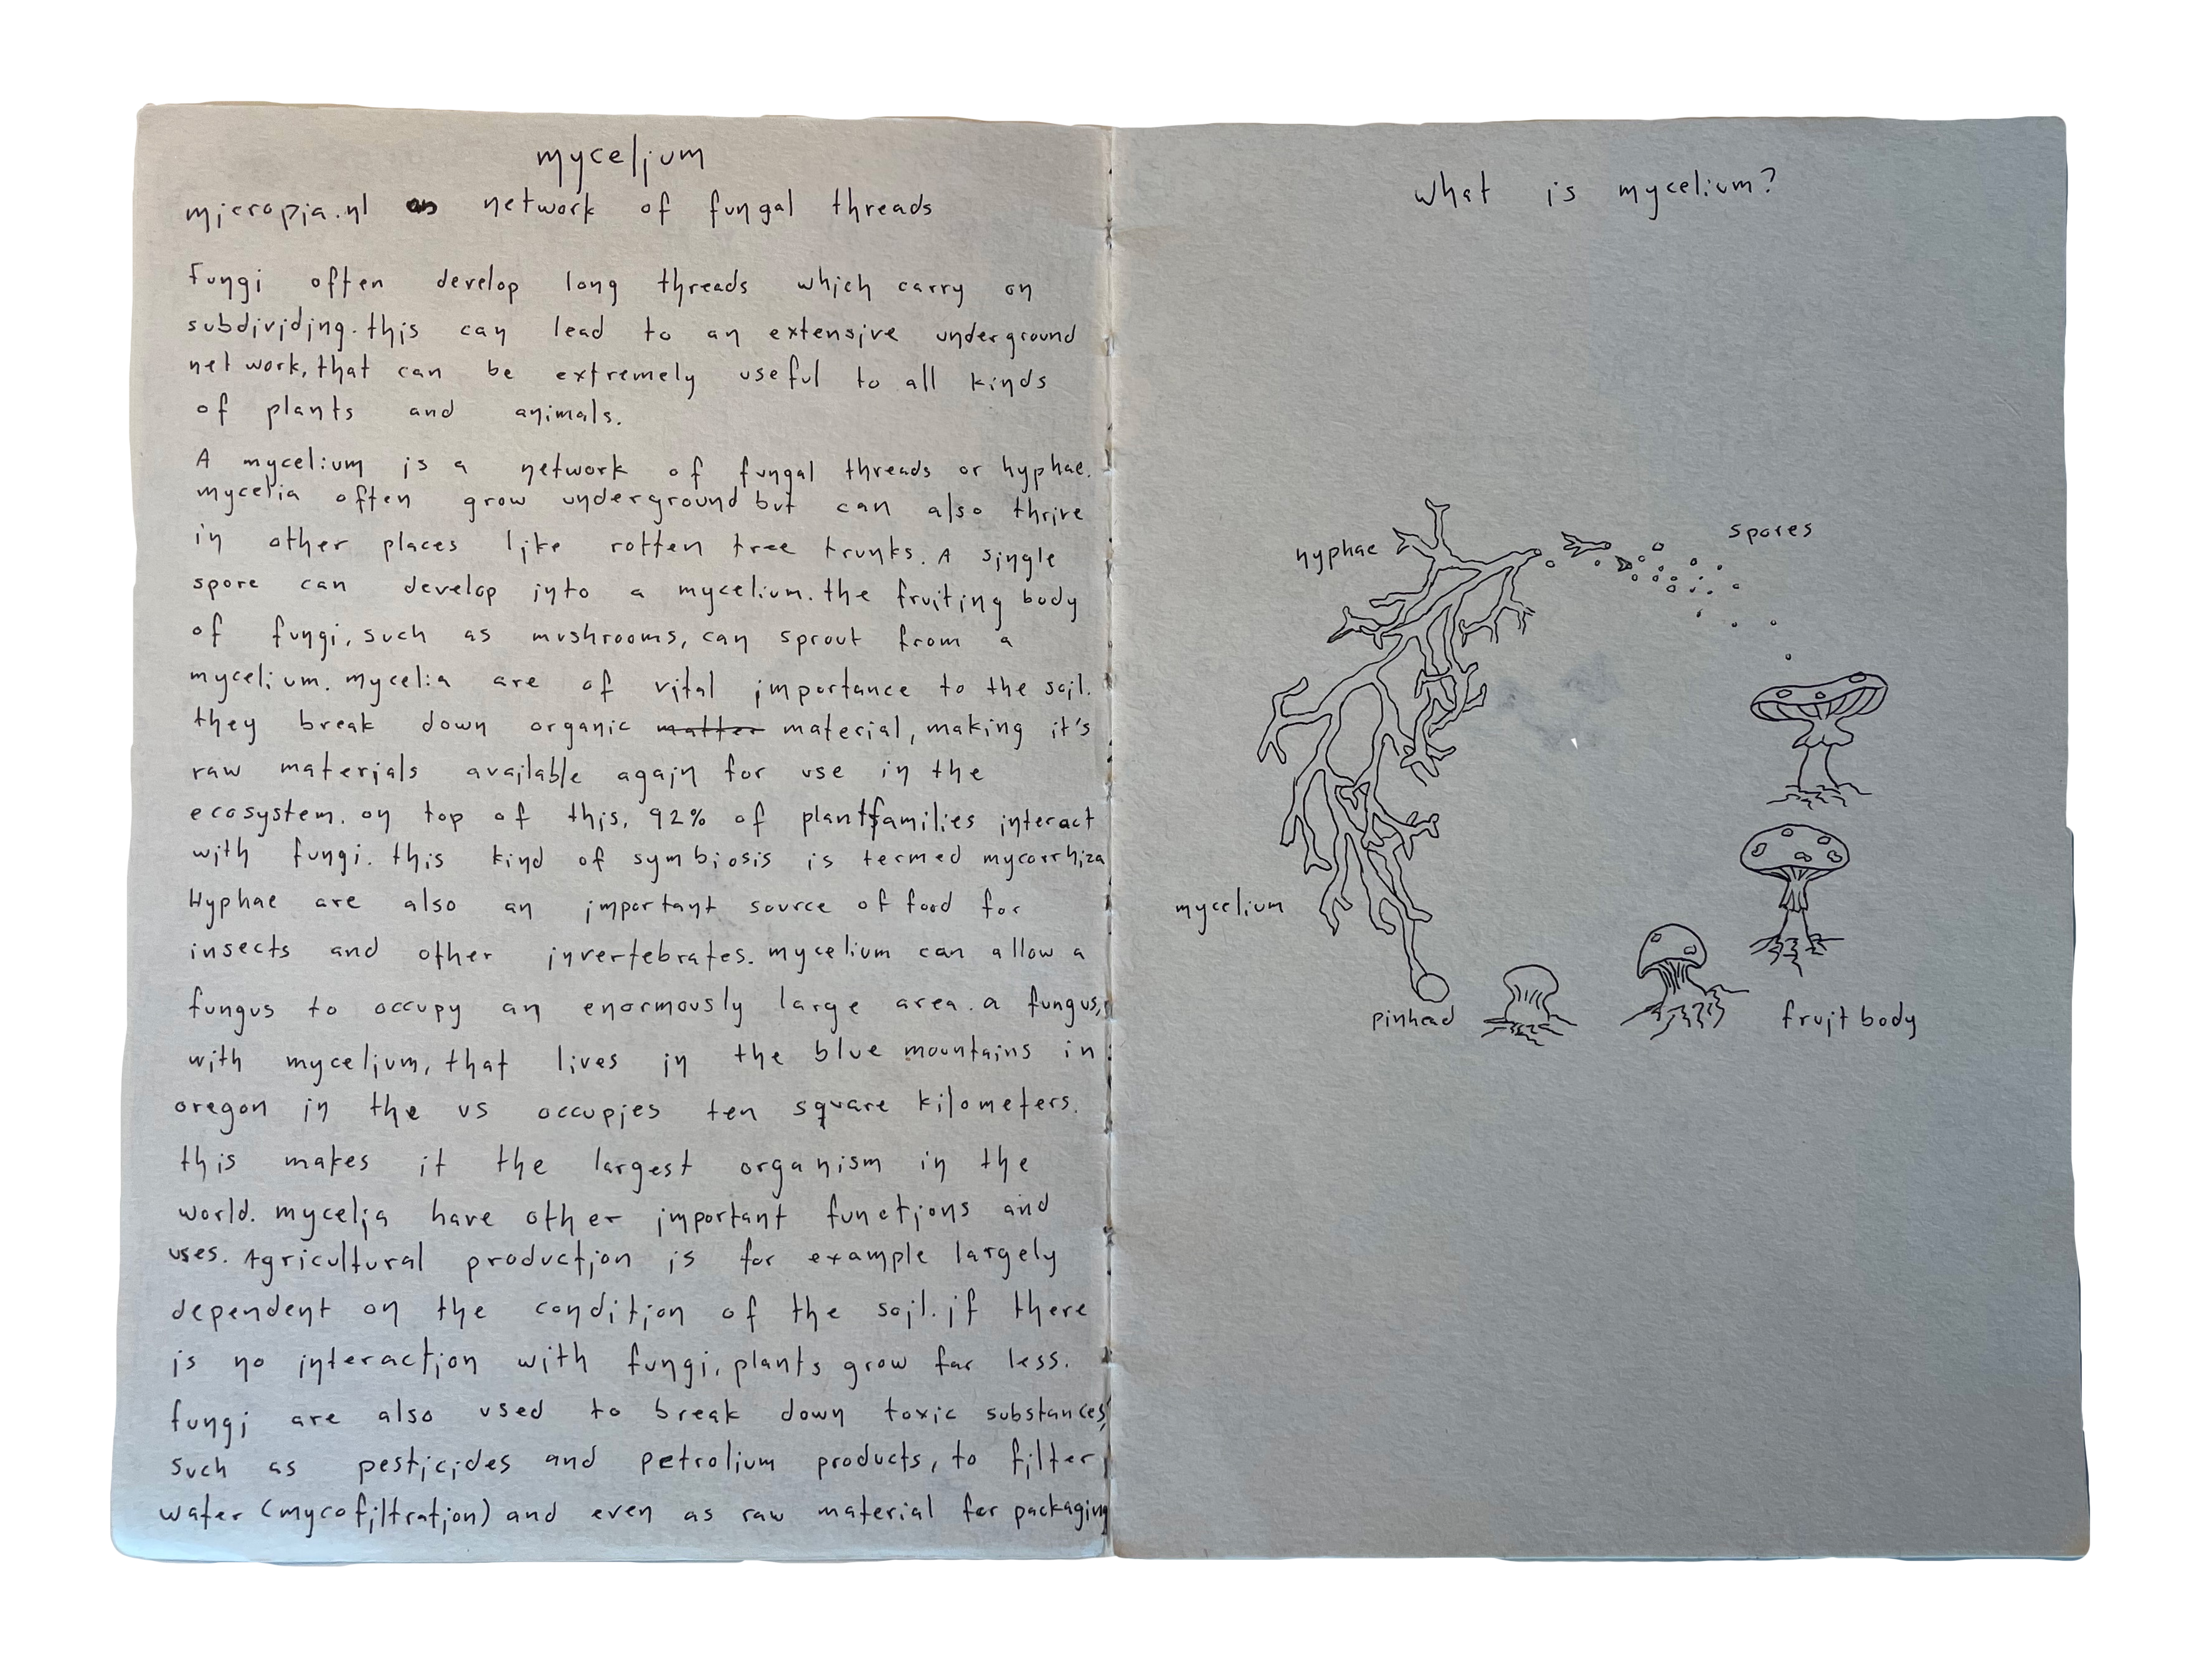 mycelium
micropia.nl network of fungal threads
Fungi often develop long threads which carry on
subdividing. this can lead to an extensive underground
net work, that can be extremely useful to all kinds
of plants and animals.
A mycelium is a network of fungal threads or hyphae.
mycelia often grow underground but can also thrive
in other places like rotten tree trunks. A single
spore can develop into a mycelium. the fruiting body
of fungi, such as mushrooms, can sprout from a
mycelium. mycelia are of vital importance to the soil.
they break down organic matter material, making it's
raw materials available again for use in the
ecosystem. on top of this, 92% of plantfamilies interact
with fungi. this kind of symbiosis is termed mycorrhiza
Hyphae are also an important source of food for
insects and other invertebrates. mycelium can allow a
fungus to occupy an enormously large area. a fungus,
with mycelium, that lives in the blue mountains in
oregon in the us occupies ten square kilometers.
this makes it the largest organism in the
world. mycelia have other important functions and
uses. Agricultural production is for example largely
dependent on the condition of the soil. if there
is no interaction with fungi, plants grow far less.
fungi are also used to break down toxic substances,
such as pesticides and petrolium products, to filter
water (mycofiltration) and even as raw material for packaging
what is mycelium?
spores
hyphae
mycelium
pinhead
fruit body